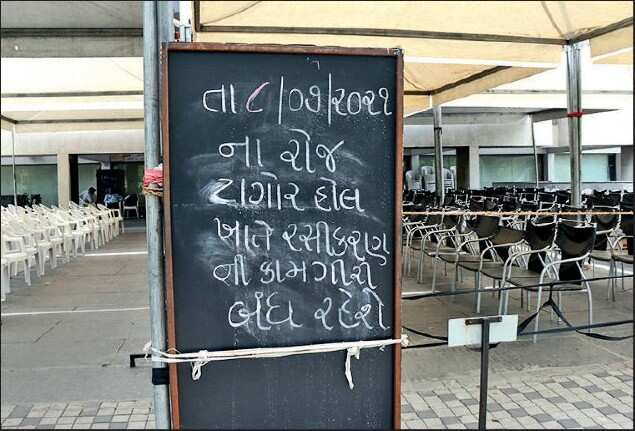 તા ૮/૦૭/૨૦૨૧
ના રોજ
ટાગોર હોલ
ખાતે રસીકરણ
ની કામગીરી
બંધ રહેશે